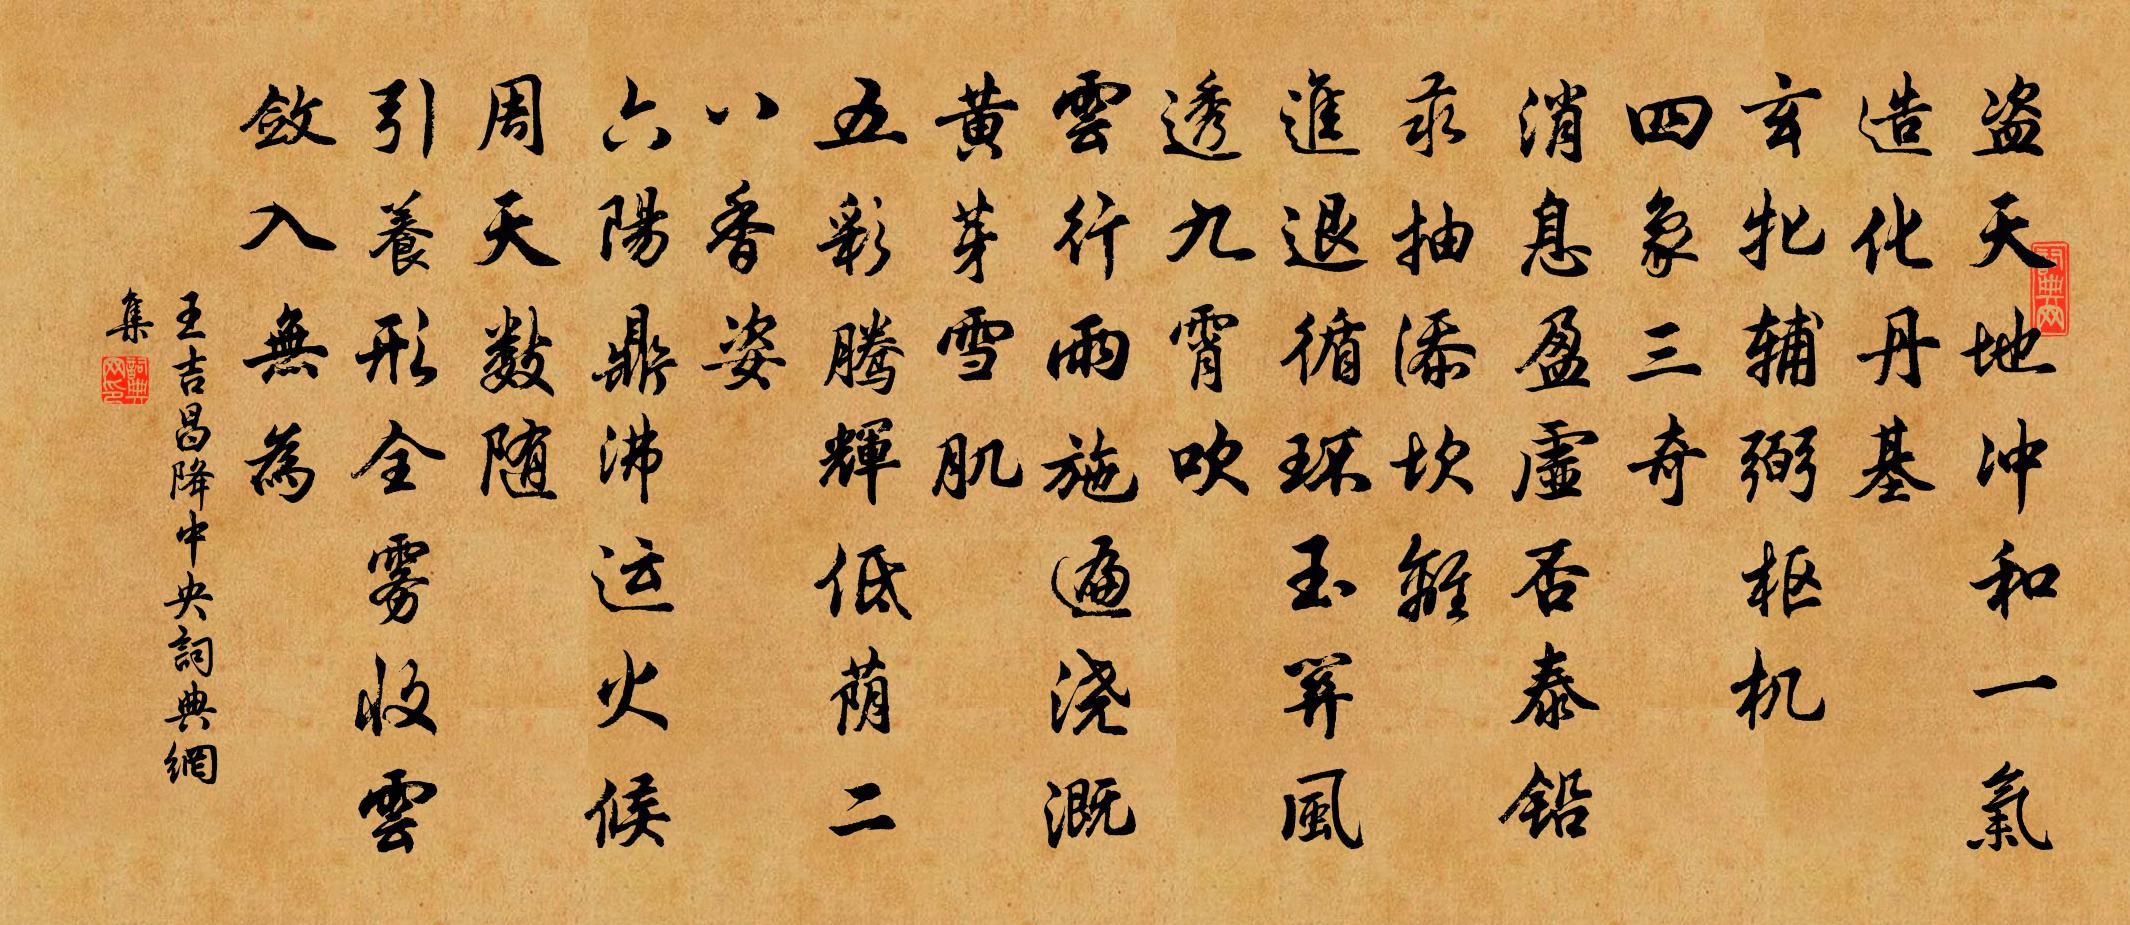 盗天地冲和一氣
造化丹基
玄牝辅弼枢机
四象三奇
消息盈虛否泰铅
汞抽添坎離
進退循环玉筭風
透九霄吹
雲行雨施遍浇溉
黄芽雪肌
五彩腾輝低荫二
八香姿
六陽鼎沸运火候
周天数随
引養形全雾收雲
敛入無為
王吉昌降中央詞典網
集
詞典网
詞典网印